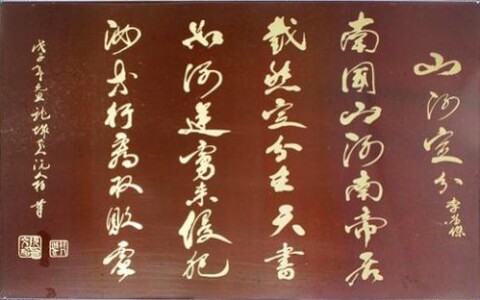 山河定分
李常傑
南國山河南帝居
截然定分在天書
如何逆虜來侵犯
汝等行看取敗虛
戊子年